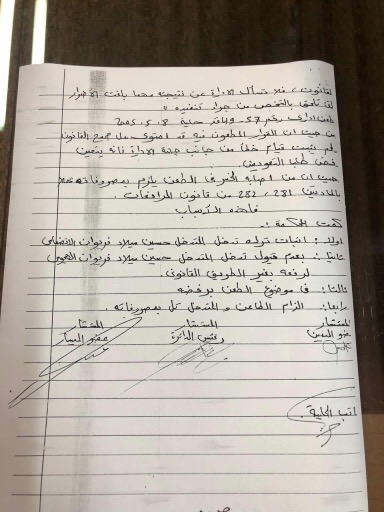 القانون ، فلا تسأل الادارة عن نتيجته مهما بلغت الاضرار
التي تلحق بالشخص من جراء تنفيذه "
طعن اداري رقم 57 لسنة ق جلسة 8 . 5 . 2005
من حيث ان القرار المطعون فيه قد استوى على صحيح القانون
ولم يثبت قيام خطأ من جانب جهة الادارة فانه يتعين
رفض طلب التعويض .
حيث ان من اصابه الخسران في الطعن يلزم بمصروفاته عملا
بالمادتين 281 ، 282 من قانون المرافعات .
فلهذه الأسباب
حكمت المحكمة :-
اولا : اثبات ترك تدخل المتدخل حسين ميلاد فريوان الانضمامي
ثانيا : بعدم قبول تدخل المتدخل حسين ميلاد فريوان الهجومي
لرفعه بغير الطريق القانوني .
ثالثا : في موضوع الطعن برفضه
رابعا : الزام الطاعن والمتدخل كل بمصروفاته .
المستشار المستشار المستشار
عضو اليمين رئيس الدائرة عضو اليسار
كاتب الجلسة